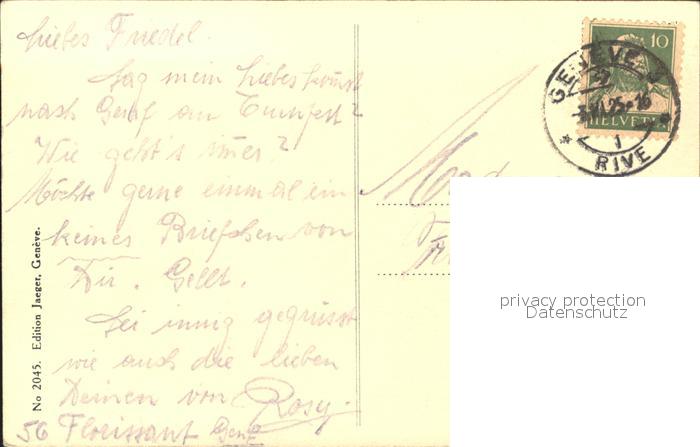 Liebes Friedel.
Sag mein Liebes kommst
nach Genf am Turnfest?
Wie geht's immer?
Möchte gerne einmal ein
kleines Briefchen von
Dir. Gellt.
Sei innig gegrüsst
wie auch die lieben
Deinen von Rosy.
56 Florissant Genf
No 2045. Edition Jaeger, Genève.
10
HELVETIA
GENÈVE
25-16
1
RIVE
privacy protection
Datenschutz